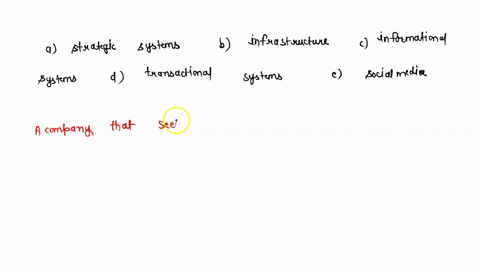 a) strategic systems b) infrastructure c) informational
systems d) transactional systems e) social media
A company that see